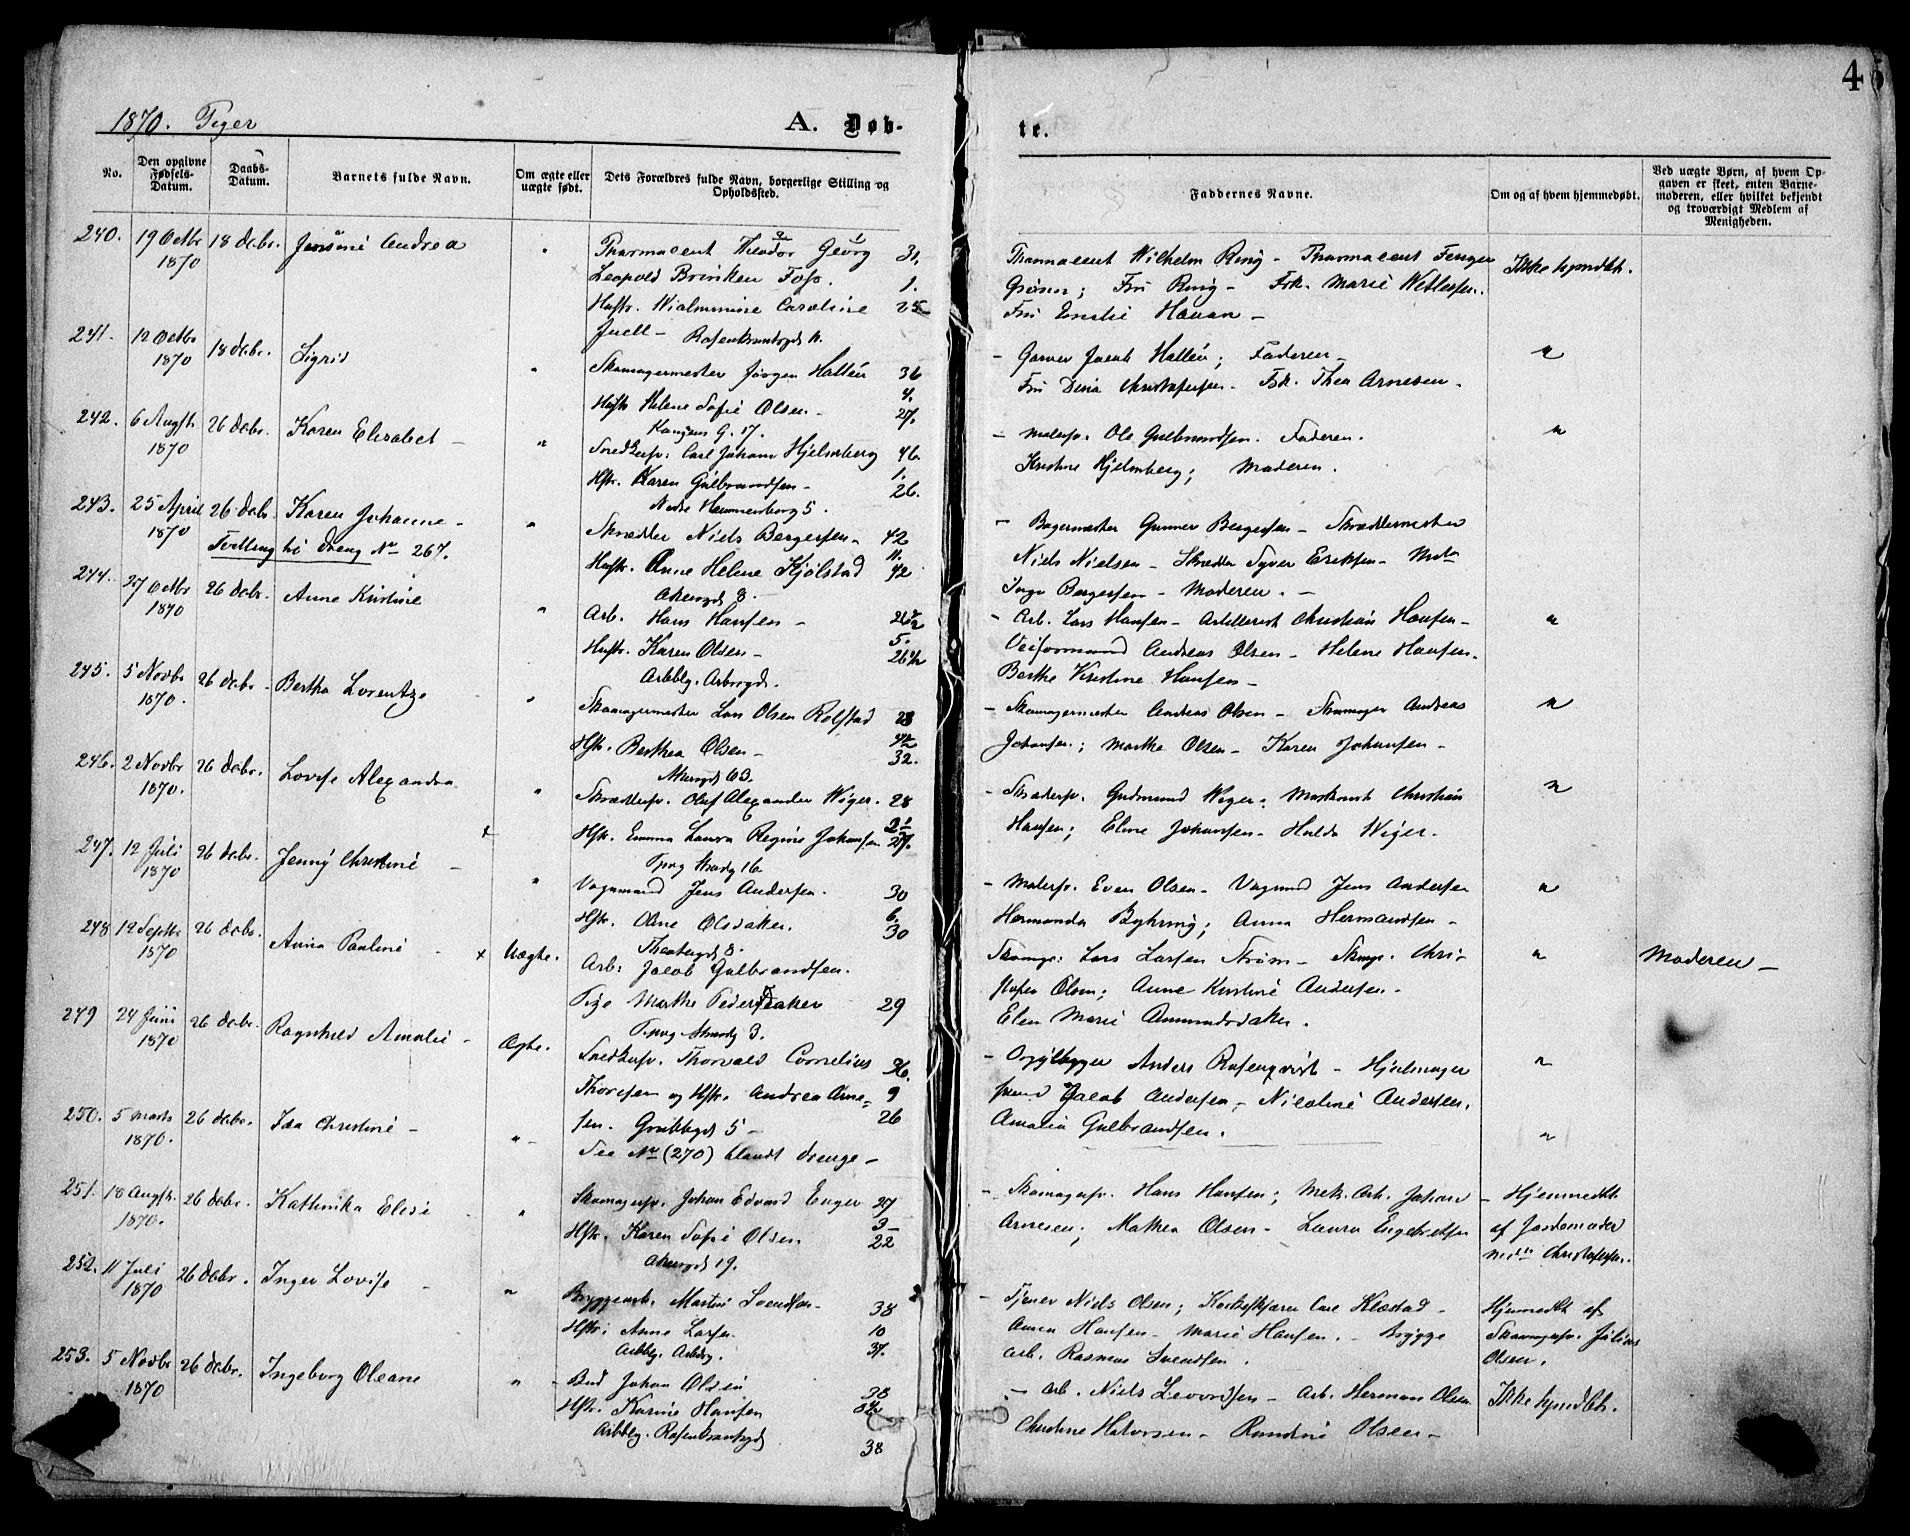 1870. Piger
A. Døb-
te.
45
No.
Den opgivne Fødsels-Datum.
Daabs-Datum.
Barnets fulde Navn.
Om ægte eller uægte født.
Dets Forældres fulde Navn, borgerlige Stilling og Opholdssted.
Faddernes Navne.
Om og af hvem hjemmedøbt.
Ved uægte Børn, af hvem Opgaven er skeet, enten Barnemoderen, eller hvilket bekjendt og troværdigt Medlem af Menigheden.
240. 19 Octbr 1870 18 Debr. Andrea
Pharmaceut Theodor Georg 31.
Leopold Brinken Foss. 1.
Hustr. Wialmmine Caroline 25
Juell - Rosenkrantzgd 11.
Pharmaceut Wilhelm Ring - Pharmaceut Fenger
Grønn; Fru Ring - Frk. Marie Wetlesen.
Fru Emilie Hauan -
Ikke hjmdbt.
241. 12 Octbr 1870 18 Debr. Sigrid "
Skomagermester Jørgen Hallén 36
4.
Hustr Helene Sofie Olsen - 27.
Kongens G. 17.
- Garver Jacob Hallén; Faderen -
Fru Dina Christophersen - Frk. Thea Arnesen.
"
242. 6 Augst. 1870 26 Debr. Karen Elisabet - "
Snedkersv. Carl Johann Hjelmberg 46.
1.
Hstr. Karen Gulbrandsen - 26.
Nedre Hammersborg 5.
- Malersv. Ole Gulbrandsen. Faderen.
Kristine Hjelmberg; Moderen.
"
243. 25 April 1870 26 Debr. Karen Johanne - "
Tvilling til Dreng No 267.
Skrædder Niels Bergersen - 42
11.
Hustr. Anne Helene Kjølstad 42
Akersgd 8.
- Bagermester Gunner Bergersen - Skræddermester
Niels Nielsen - Skrædder Syver Eriksen -
Bergersen - Moderen. -
244. 27 Octbr 1870 26 Debr. Anne Kristine "
Arb. Hans Hansen -
5.
Hustr. Karen Olsen - 26 1/2
Arbblg. Arbsgd.
- Arb. Lars Hansen - Artillerist Christian Hansen -
Veiformand Andreas Olsen - Helene Hansen.
Berthe Kirstine Hansen -
"
245. 5 Novbr 1870. 26 Debr. Bertha Lorentze "
Skomagermester Lars Olsen Rolstad 28
4 1/2
Hstr. Berthea Olsen - 32.
Akersgd 63.
- Skomagermester Andreas Olsen - Skomager Andreas
Johansen; Marthe Olsen - Karen Johansen -
"
246. 2 Novbr 1870. 26 Debr. Lovise Alexandra "
Skræddersv. Oluf Alexander Wiger. 28
Hstr. Emma Laura Regine Johansen 27.
16.
- Skrædersv. Gudmund Wiger; Maskinist Christian
Hansen; Eline Johansen - Hulda Wiger.
"
247. 12 Juli 1870 26 Debr. Jenny Christine - "
Vognmand Jens Andersen. 30
6.
Hstr. Oline Olsdaker. 30
Theatergd 8.
- Malersv. Even Olsen - Vogmd Jens Andersen
Hermanda Byhring; Anna Hermandsen -
"
248 12 Septbr 1870 26 Debr. Anna Pauline - x Uægte.
Arb: Jacob Gulbrandsen.
Pige Marthe 29
3.
Skomgr: Lars Larsen Strøm - Skmgr. Chri-
stofer Olsen; Anne Kristine Andersen -
Elen Marie Amundsdaker.
"
Moderen -
249 24 Juni 1870 26 Debr. Ragnhild Amalie - Ægte.
Snedkersv. Thorvald Cornelius 36.
Thoresen og Hstr. Andrea Arne- 9
sen. Grubbegd 5 - 26
- Orgelbygger Anders Rosenqvist - Hjulmager
svend Jacob Andersen - Nicoline Andersen.
Amalia Gulbrandsen.
"
250. 5 Marts 1870. 26 Debr. Ida Christine - " -
See No (270) blandt Drenge -
"
251. 18 Augst. 1870. 26 Debr. Kathinka Elise "
Skomagersv. Johan Edvard Enger 27
3
Hstr. Karen Sofie Olsen 22
Akersgd 19.
- Skomagersv. Hans Hansen; Mek. Arb. Johan
Arnesen; Mathea Olsen - Laura Engebretsen
- Hjemmedbt
af Jordemoder
Christofersen.
252. 11 Juli 1870 26 Debr. Inger Lovise - "
Bryggearb. Martin Svendsen - 38
Hstr. Anne Larsen 10
Arbblg. Arbdrg. 37.
- Tjener Niels Olsen; Karl Klæstad -
Anna Hansen - Marie Hansen. - Brygge
arb. Rasmus Svendsen.
Hjemmedbt af
Skomagersv. Julius
Olsen.
253. 5 Novbr 1870 26 Debr. Ingeborg Oleane "
Bud Johan Olsen 38
Hstr. Karine Hansen
Arbblg. Rosenkrantzgd 38
- Arb. Niels Levordsen - Arb. Herman Olsen
Christine Halvorsen - Randine Olsen -
Ikke hjmdbt.